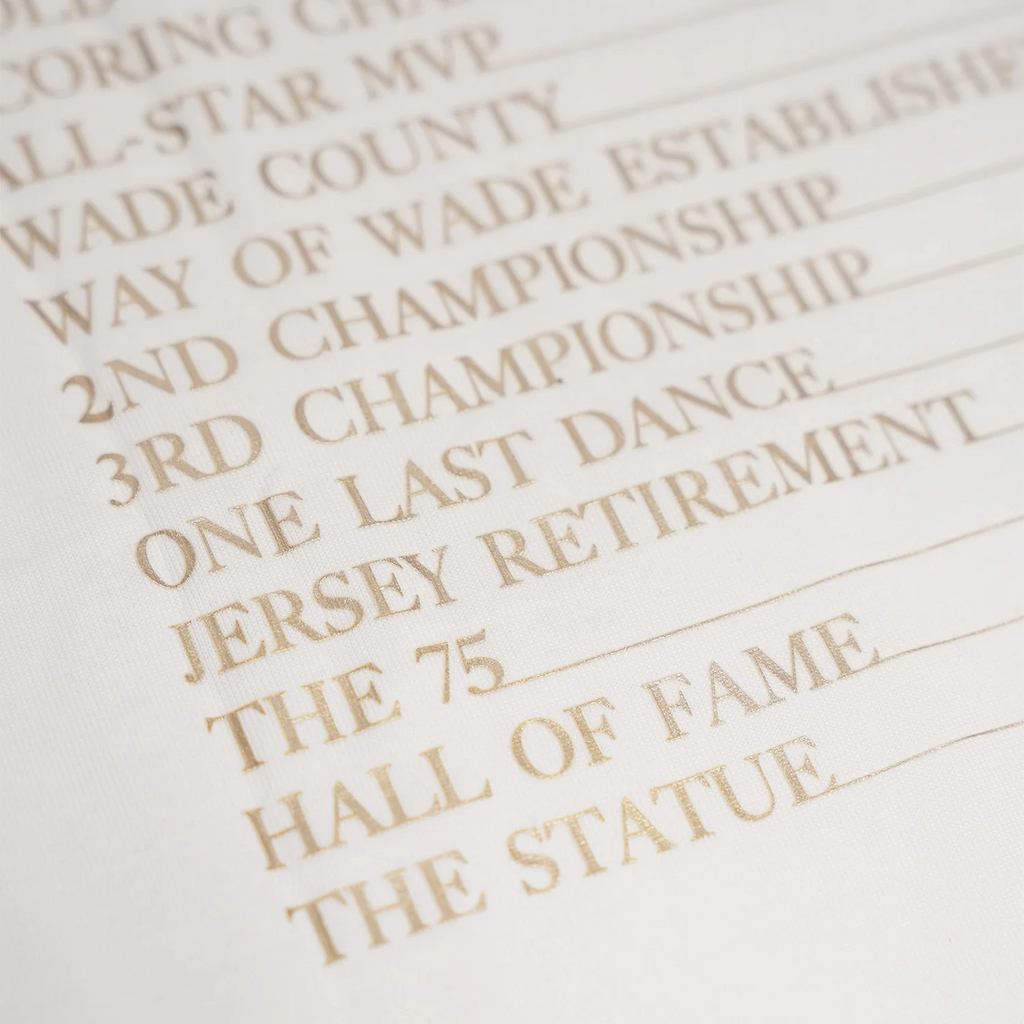 ALL-STAR MVP
WADE COUNTY
WAY OF WADE ESTABLISHE
2ND CHAMPIONSHIP
3RD CHAMPIONSHIP
ONE LAST DANCE
JERSEY RETIREMENT
THE 75
HALL OF FAME
THE STATUE